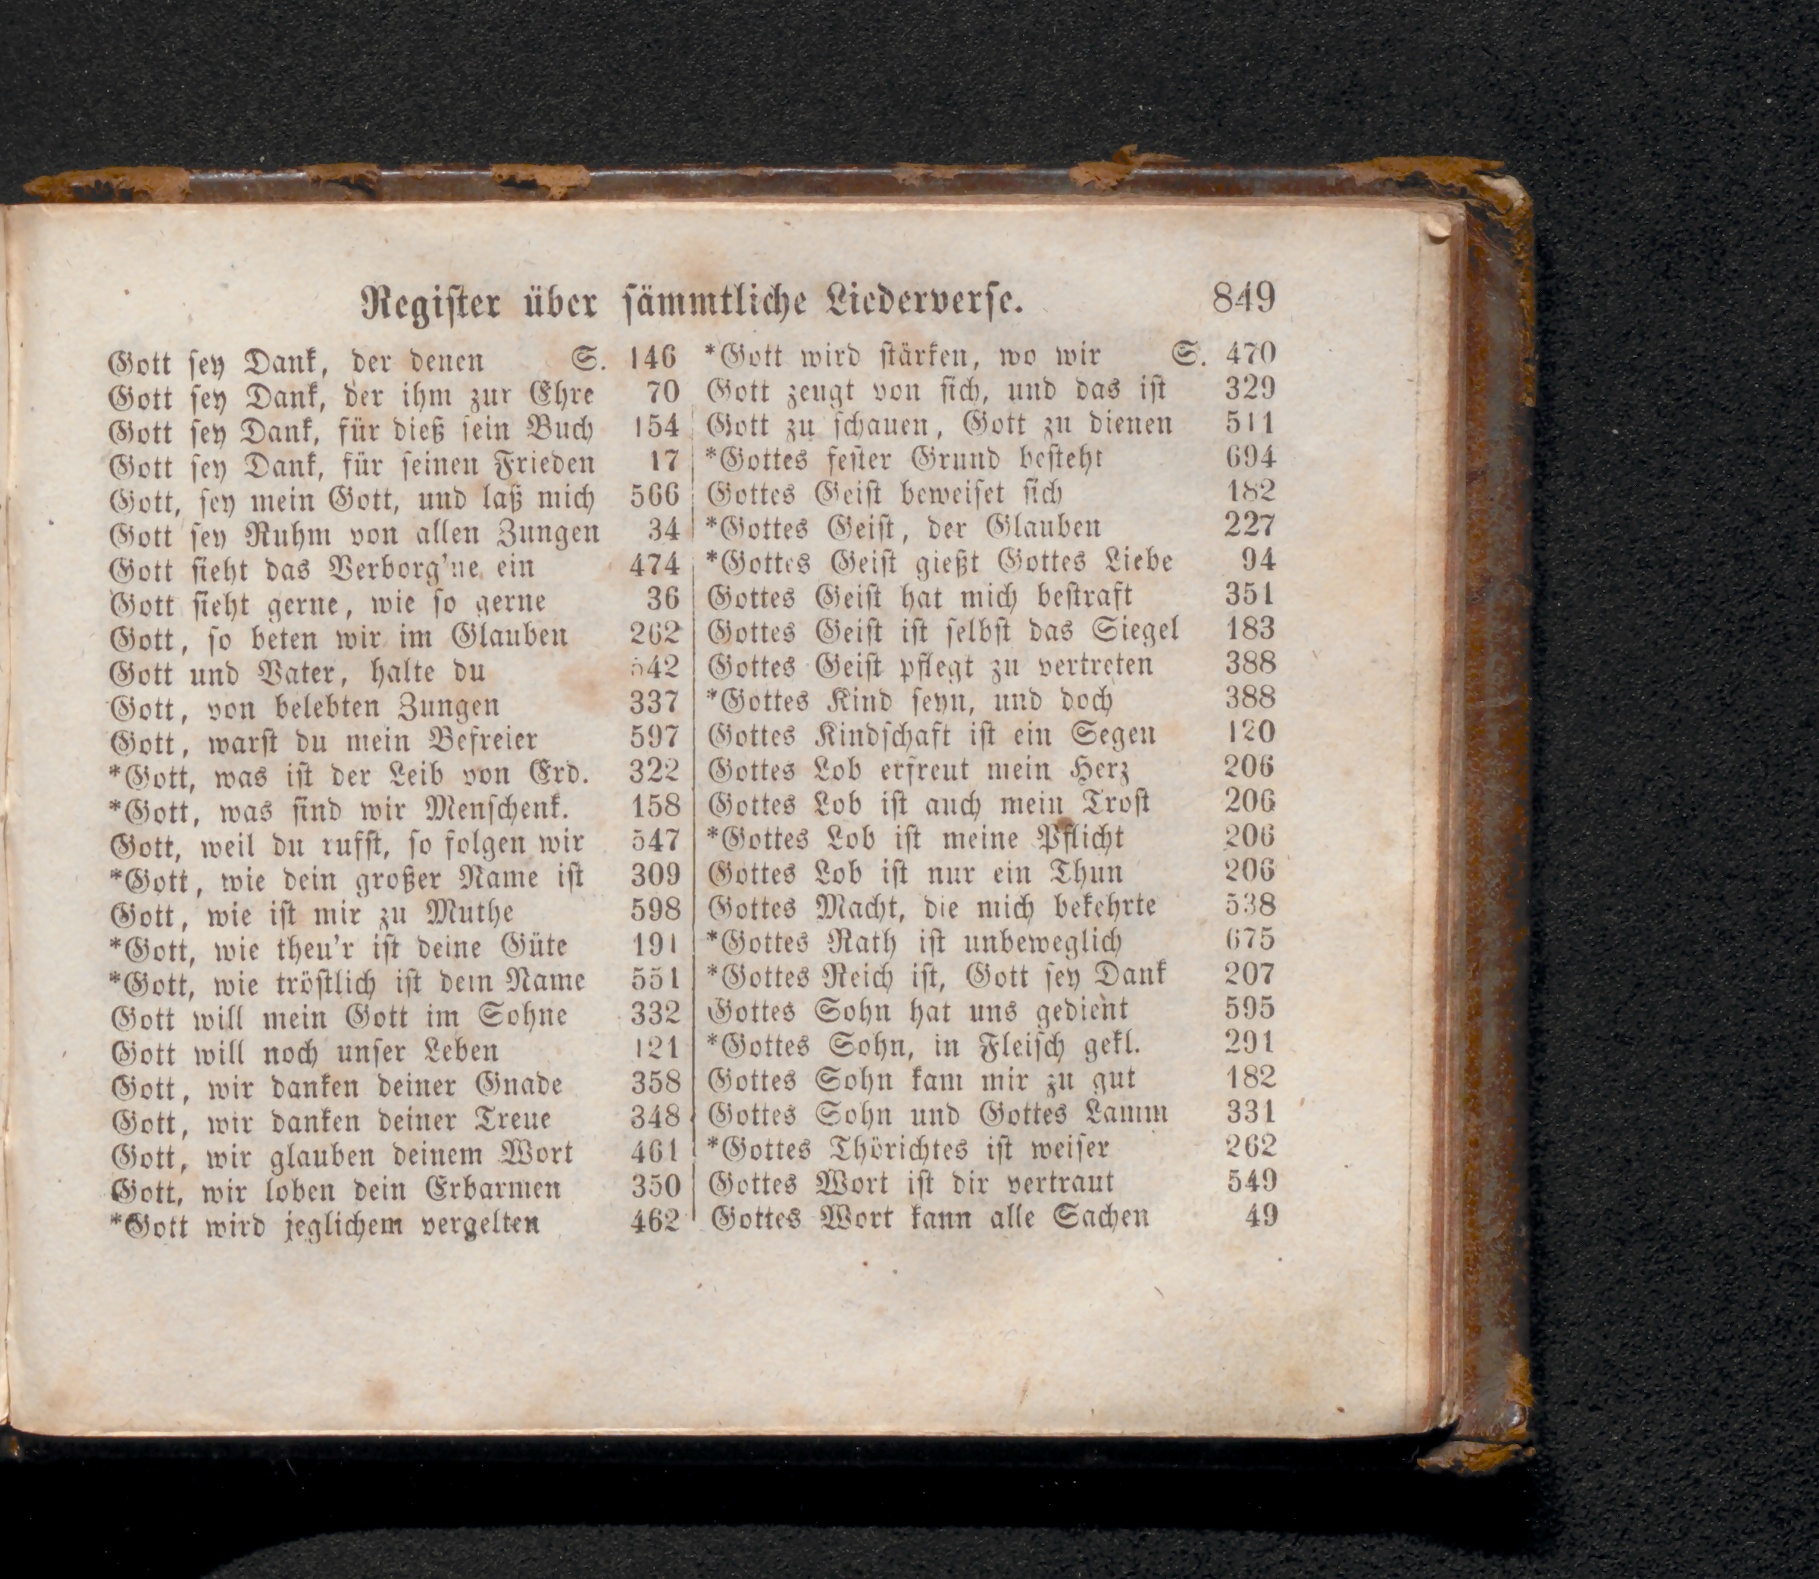 Register über sämmtliche Liederverse. 849
Gott sey Dank, der denen S. 146
Gott sey Dank, der ihm zur Ehre 70
Gott sey Dank, für dieß sein Buch 154
Gott sey Dank, für seinen Frieden 17
Gott, sey mein Gott, und laß mich 566
Gott sey Ruhm von allen Zungen 34
Gott sieht das Verborg'ne ein 474
Gott sieht gerne, wie so gerne 36
Gott, so beten wir im Glauben 262
Gott und Vater, halte du 542
Gott, von belebten Zungen 337
Gott, warst du mein Befreier 597
*Gott, was ist der Leib von Erd. 322
*Gott, was sind wir Menschenk. 158
Gott, weil du rufst, so folgen wir 547
*Gott, wie dein großer Name ist 309
Gott, wie ist mir zu Muthe 598
*Gott, wie theu'r ist deine Güte 191
*Gott, wie tröstlich ist dein Name 551
Gott will mein Gott im Sohne 332
Gott will noch unser Leben 121
Gott, wir danken deiner Gnade 358
Gott, wir danken deiner Treue 348
Gott, wir glauben deinem Wort 461
Gott, wir loben dein Erbarmen 350
*Gott wird jeglichem vergelten 462
*Gott wird stärken, wo wir S. 470
Gott zeugt von sich, und das ist 329
Gott zu schauen, Gott zu dienen 511
*Gottes fester Grund besteht 694
Gottes Geist beweiset sich 182
*Gottes Geist, der Glauben 227
*Gottes Geist gießt Gottes Liebe 94
Gottes Geist hat mich bestraft 351
Gottes Geist ist selbst das Siegel 183
Gottes Geist pflegt zu vertreten 388
*Gottes Kind seyn, und doch 388
Gottes Kindschaft ist ein Segen 120
Gottes Lob erfreut mein Herz 206
Gottes Lob ist auch mein Trost 206
*Gottes Lob ist meine Pflicht 206
Gottes Lob ist nur ein Thun 206
Gottes Macht, die mich bekehrte 538
*Gottes Rath ist unbeweglich 675
*Gottes Reich ist, Gott sey Dank 207
Gottes Sohn hat uns gedient 595
*Gottes Sohn, in Fleisch gekl. 291
Gottes Sohn kam mir zu gut 182
Gottes Sohn und Gottes Lamm 331
*Gottes Thörichtes ist weiser 262
Gottes Wort ist dir vertraut 549
Gottes Wort kann alle Sachen 49